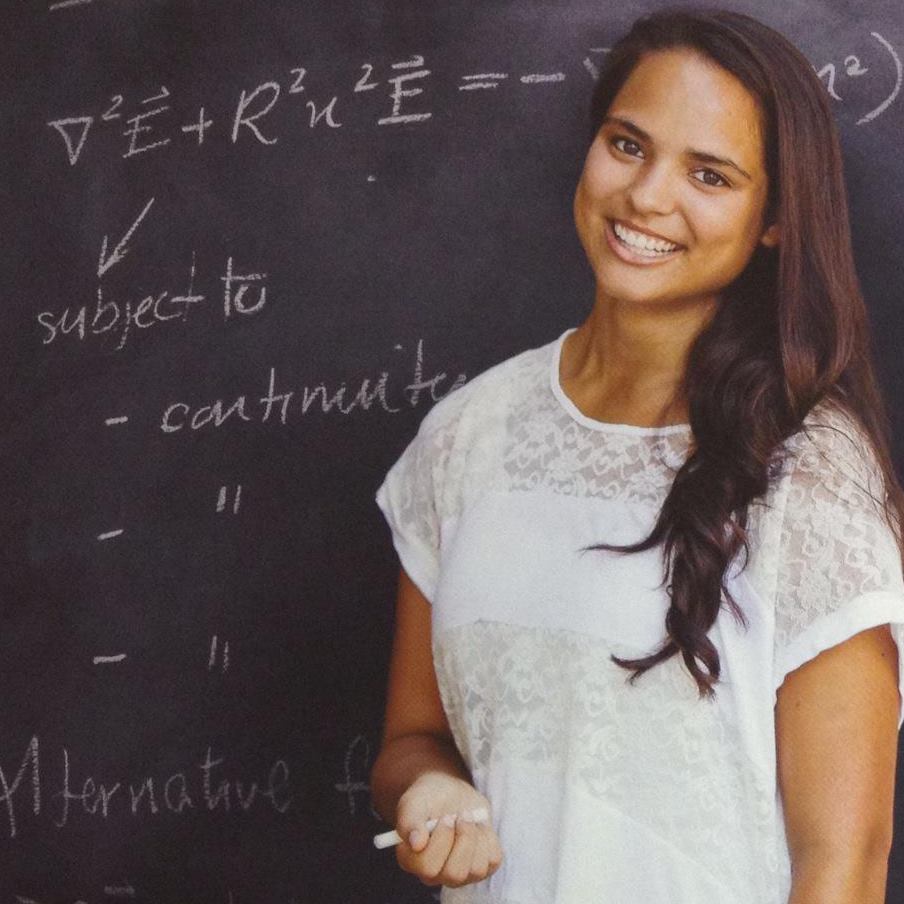 ∇²E⃗ + R²n²E⃗ = - ∇ n²)
subject to
- continuity
- "
- "
Alternative f